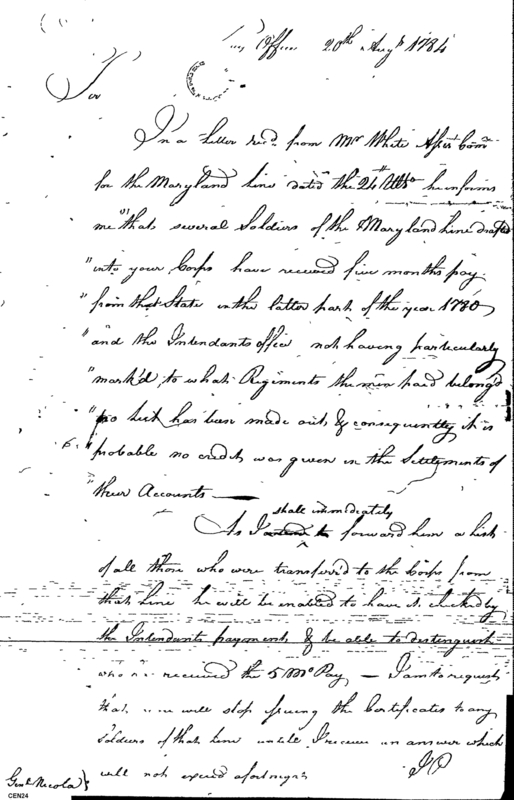 Pay Office 20th Augt 1784
Sir
In a Letter recd. from Mr White Assist Comr.
for the Maryland Line dated the 26th Ulto he informs
me "that several Soldiers of the Maryland Line drafted
"into your Corps have received five months pay
"from that State in the latter part of the year 1780
"and the Intendants office not having particularly
"mark'd to what Regiments the men paid belong'd
"no list has been made out & consequently it is
"probable no credit was given in the Settlements of
"their Accounts —
As I intend to shall immediately forward him a list
of all those who were transferr'd to the Corps from
that Line he will be enabled to have it checked by
the Intendants payments & be able to distinguish
who received the 5 Mos Pay — I am to request
that you will stop issuing the Certificates to any
soldiers of that Line untill I receive an answer which
will not exceed a fortnight
JP
Genl Nicola}
CEN24